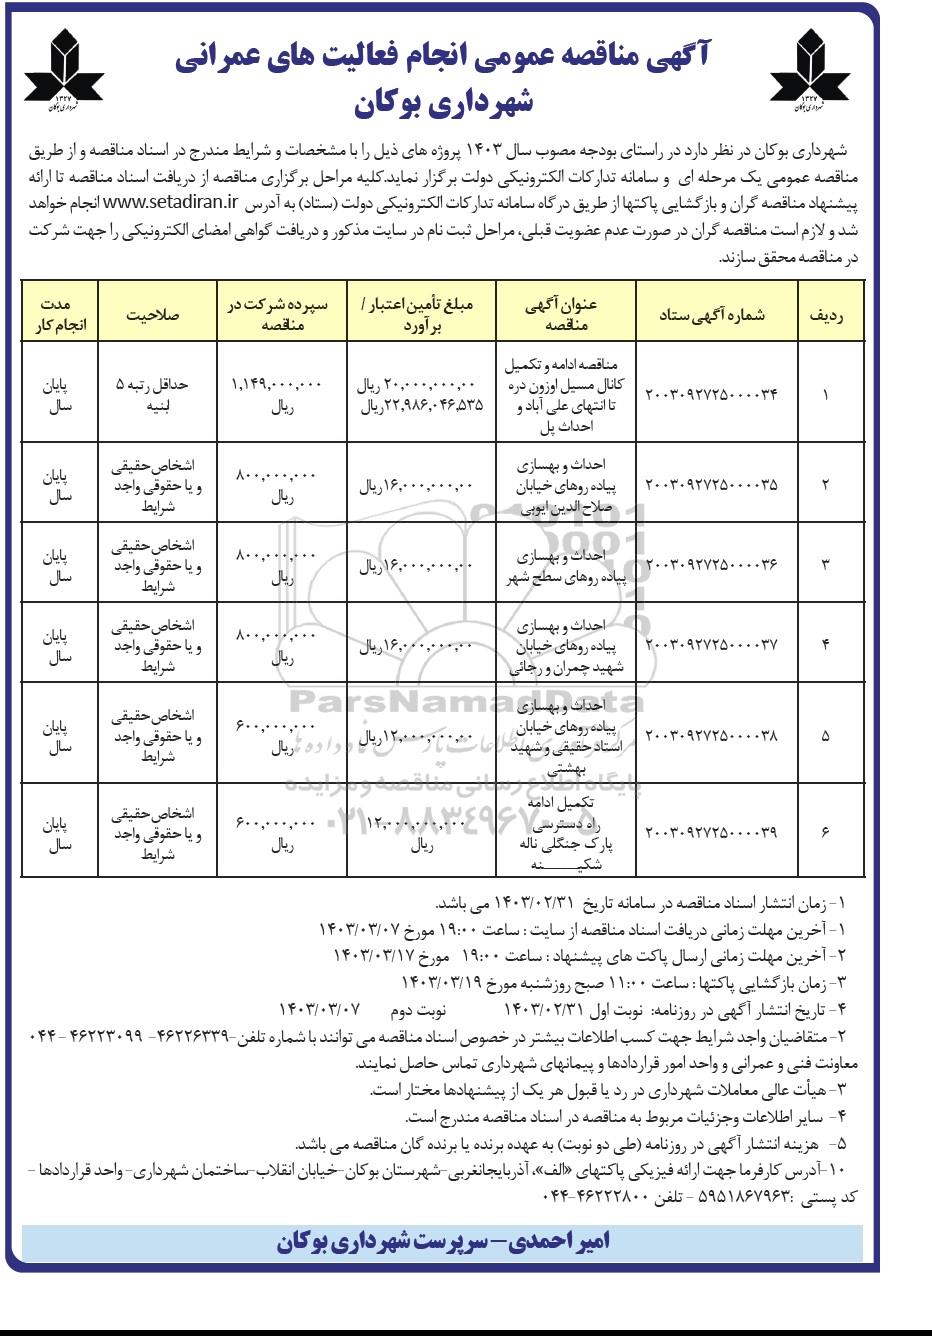 آگهی مناقصه عمومی انجام فعالیت های عمرانی
شهرداری بوکان
۱۳۲۷
شهرداری بوکان
۱۳۲۷
شهرداری بوکان
شهرداری بوکان در نظر دارد در راستای بودجه مصوب سال ۱۴۰۳ پروژه های ذیل را با مشخصات و شرایط مندرج در اسناد مناقصه و از طریق
مناقصه عمومی یک مرحله ای و سامانه تدارکات الکترونیکی دولت برگزار نماید.کلیه مراحل برگزاری مناقصه از دریافت اسناد مناقصه تا ارائه
پیشنهاد مناقصه گران و بازگشایی پاکتها از طریق درگاه سامانه تدارکات الکترونیکی دولت (ستاد) به آدرس www.setadiran.ir انجام خواهد
شد و لازم است مناقصه گران در صورت عدم عضویت قبلی، مراحل ثبت نام در سایت مذکور و دریافت گواهی امضای الکترونیکی را جهت شرکت
در مناقصه محقق سازند.
ردیف
شماره آگهی ستاد
عنوان آگهی
مناقصه
مبلغ تأمین اعتبار /
برآورد
سپرده شرکت در
مناقصه
صلاحیت
مدت
انجام کار
۱
۲۰۰۳۰۹۲۷۲۵۰۰۰۰۳۴
مناقصه ادامه و تکمیل
کانال مسیل اوزون دره
تا انتهای علی آباد و
احداث پل
۲۰,۰۰۰,۰۰۰,۰۰ ریال
۲۲,۹۸۶,۰۴۶,۵۳۵ریال
۱,۱۴۹,۰۰۰,۰۰۰
ریال
حداقل رتبه ۵
ابنیه
پایان
سال
۲
۲۰۰۳۰۹۲۷۲۵۰۰۰۰۳۵
احداث و بهسازی
پیاده روهای خیابان
صلاح الدین ایوبی
۱۶,۰۰۰,۰۰۰,۰۰ریال
۸۰۰,۰۰۰,۰۰۰
ریال
اشخاص حقیقی
و یا حقوقی واجد
شرایط
پایان
سال
۳
۲۰۰۳۰۹۲۷۲۵۰۰۰۰۳۶
احداث و بهسازی
پیاده روهای سطح شهر
۱۶,۰۰۰,۰۰۰,۰۰ریال
۸۰۰,۰۰۰,۰۰۰
ریال
اشخاص حقیقی
و یا حقوقی واجد
شرایط
پایان
سال
۴
۲۰۰۳۰۹۲۷۲۵۰۰۰۰۳۷
احداث و بهسازی
پیاده روهای خیابان
شهید چمران و رجائی
۱۶,۰۰۰,۰۰۰,۰۰ریال
۸۰۰,۰۰۰,۰۰۰
ریال
اشخاص حقیقی
و یا حقوقی واجد
شرایط
پایان
سال
۵
۲۰۰۳۰۹۲۷۲۵۰۰۰۰۳۸
احداث و بهسازی
پیاده روهای خیابان
استاد حقیقی و شهید
بهشتی
۱۲,۰۰۰,۰۰۰,۰۰ریال
۶۰۰,۰۰۰,۰۰۰
ریال
اشخاص حقیقی
و یا حقوقی واجد
شرایط
پایان
سال
۶
۲۰۰۳۰۹۲۷۲۵۰۰۰۰۳۹
تکمیل ادامه
راه دسترسی
پارک جنگلی ناله
شکینه
۱۲,۰۰۰,۰۰۰,۰۰۰
ریال
۶۰۰,۰۰۰,۰۰۰
ریال
اشخاص حقیقی
و یا حقوقی واجد
شرایط
پایان
سال
ParsNamadData
پایگاه اطلاع رسانی مناقصه و مزایده
۰۲۱-۸۸۳۴۹۶۷۰-۵
۱- زمان انتشار اسناد مناقصه در سامانه تاریخ ۱۴۰۳/۰۲/۳۱ می باشد.
۱- آخرین مهلت زمانی دریافت اسناد مناقصه از سایت : ساعت ۱۹:۰۰ مورخ ۱۴۰۳/۰۳/۰۷
۲- آخرین مهلت زمانی ارسال پاکت های پیشنهاد : ساعت ۱۹:۰۰ مورخ ۱۴۰۳/۰۳/۱۷
۳- زمان بازگشایی پاکتها : ساعت ۱۱:۰۰ صبح روزشنبه مورخ ۱۴۰۳/۰۳/۱۹
۴- تاریخ انتشار آگهی در روزنامه: نوبت اول ۱۴۰۳/۰۲/۳۱ نوبت دوم ۱۴۰۳/۰۳/۰۷
۲- متقاضیان واجد شرایط جهت کسب اطلاعات بیشتر در خصوص اسناد مناقصه می توانند با شماره تلفن-۴۶۲۲۶۳۳۹- ۴۶۲۲۳۰۹۹ - ۰۴۴
معاونت فنی و عمرانی و واحد امور قراردادها و پیمانهای شهرداری تماس حاصل نمایند.
۳- هیأت عالی معاملات شهرداری در رد یا قبول هر یک از پیشنهادها مختار است.
۴- سایر اطلاعات وجزئیات مربوط به مناقصه در اسناد مناقصه مندرج است.
۵- هزینه انتشار آگهی در روزنامه (طی دو نوبت) به عهده برنده یا برنده گان مناقصه می باشد.
۱۰-آدرس کارفرما جهت ارائه فیزیکی پاکتهای «الف»، آذربایجانغربی-شهرستان بوکان-خیابان انقلاب-ساختمان شهرداری- واحد قراردادها -
کد پستی :۵۹۵۱۸۶۷۹۶۳ - تلفن ۴۶۲۲۲۸۰۰-۰۴۴
امیر احمدی- سرپرست شهرداری بوکان